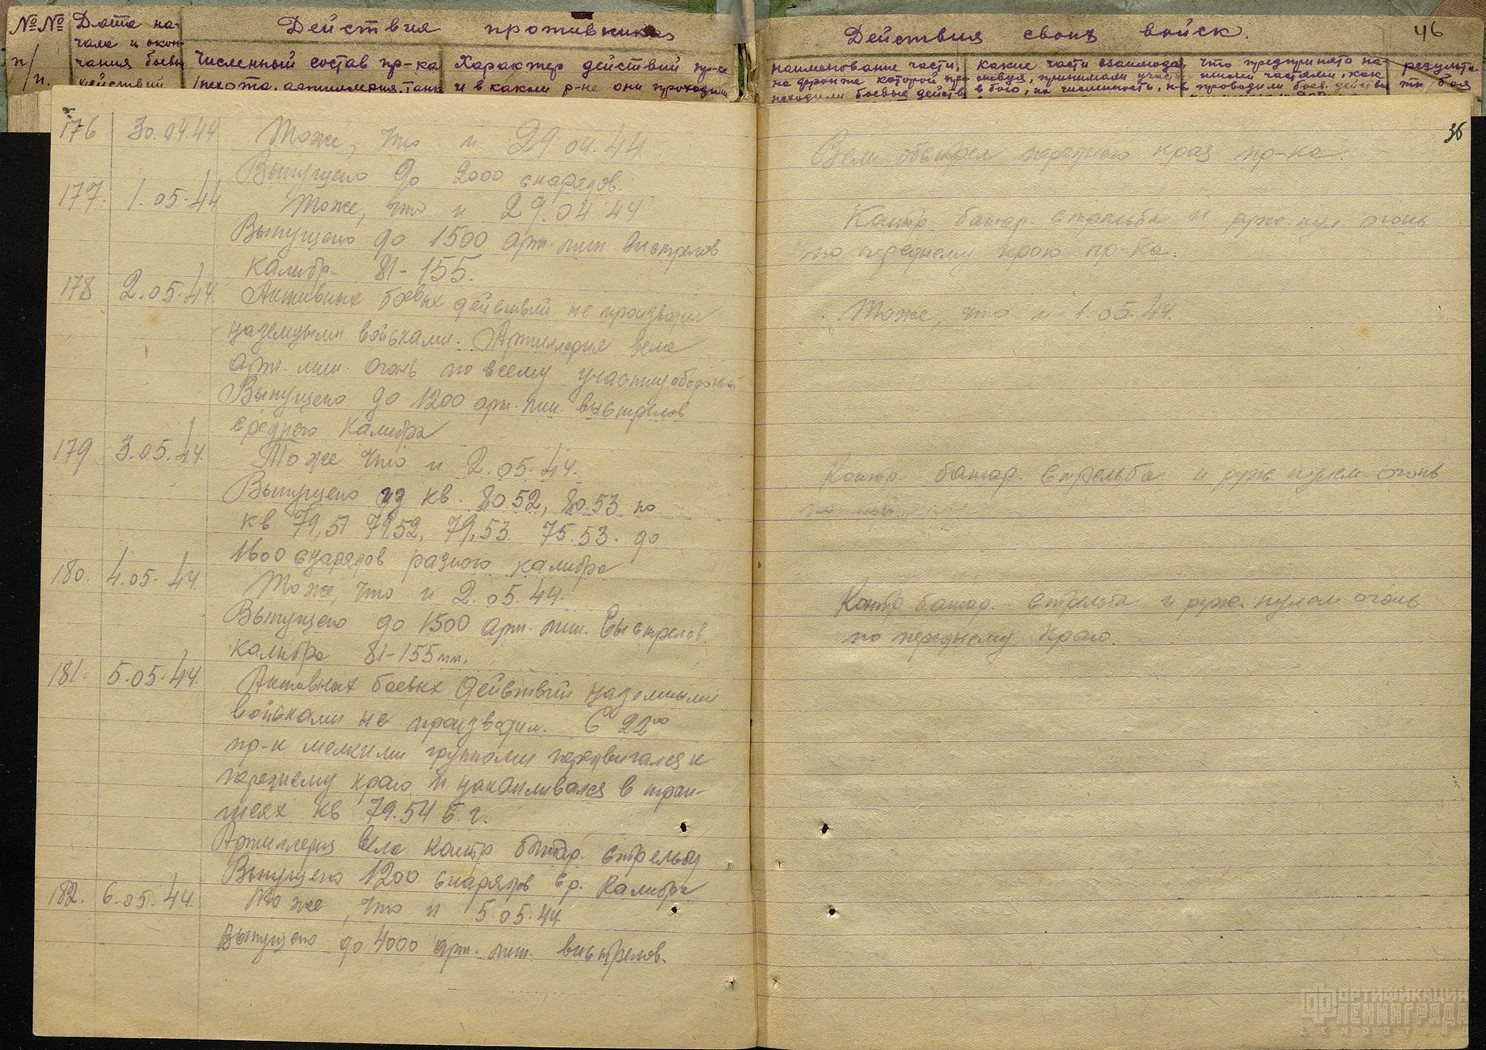 №№ Дата на-
чала и окон-
чания боевых
действий
п/п.
Действия противника
Численный состав пр-ка
пехота, артиллерия, танк
Характер действий пр-ка
и в каком р-не они проходили
Действия своих войск.
46
наименование части,
на фронте которой пр-
походили боевые действ
какие части взаимодей-
ствуя, принимали участ
в бою, их численность,
что предпринято на-
шими частями, как
проводили боев. действ
результа-
ты боя
36
176 30.04.44 Тоже, что и 29.04.44.
Выпущено до 2000 снарядов.
177. 1.05.44 Тоже, что и 29.04.44
Выпущено до 1500 арт. мин. выстрелов
калибр. 81-155.
178 2.05.44. Активных боевых действий не производил
наземными войсками. Артиллерия вела
арт. мин. огонь по всему участку обороны
Выпущено до 1200 арт. мин. выстрелов
среднего калибра
179 3.05.44. Тоже что и 2.05.44.
Выпущено из кв. 80.52, 80.53 по
кв 79,51 79.52, 79,53 75.53. до
1600 снарядов разного калибра
180. 4.05.44. Тоже, что и 2.05.44.
Выпущено до 1500 арт. мин. выстрелов
калибра 81-155мм.
181. 5.05.44. Активных боевых действий наземными
войсками не производил. С 22⁰⁰
пр-к мелкими группами передвигался к
переднему краю и накапливался в тран-
шеях кв 79.54 б.г.
Артиллерия вела контр батар. стрельбу
Выпущено 1200 снарядов ср. калибра
182. 6.05.44. Тоже, что и 5.05.44
Выпущено до 4000 арт. мин. выстрелов.
Вели обстрел переднего края пр-ка.
Контр. батар. стрельба и руж. пул огонь
по переднему краю пр-ка.
Тоже, что и 1.05.44.
Контр. батар. стрельба и руж пулем. огонь
по
Контр батар. стрельба и руж. пулем огонь
по переднему краю.
ФОРТИФИКАЦИЯ
ЛЕНИНГРАДА